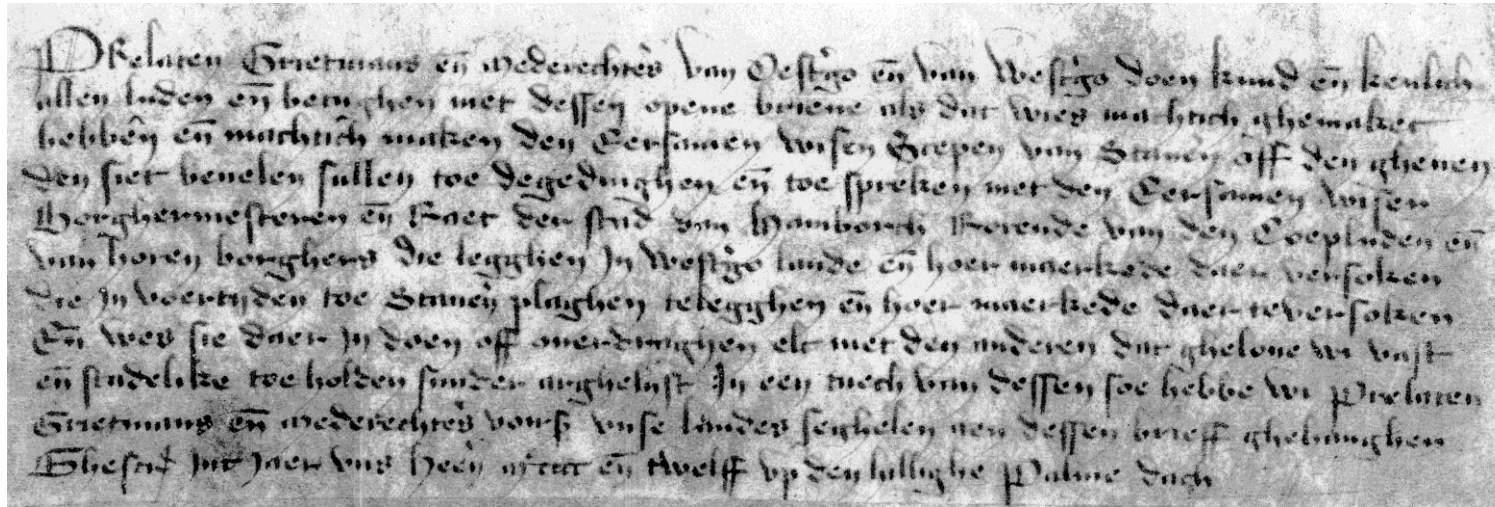 PRelaten Grietmans en̄ mederechters van Oestrgo en̄ van Westrgo doen kund en̄ kenlich
allen luden en̄ betughen met dessen opene brieue als dat wies machtich ghemaket
hebben en̄ machtich maken den Eersamen wisen Scepen van Stauern off den ghenen
den siet beuelen sullen toe degedinghen en̄ toe spreken met den Eersamen wisen
Borghermesteren en̄ Raet der stad van Hamborch Rorende van den Coepluden en̄
van horen borghers die legghen Jn Westrgo lande en̄ hoer maerkede daer versoken
die Jn voertijden toe Stauern plaghen telegghen en̄ hoer maerkede daer teversoken
En̄ wes sie daer Jn doen off ouerdraghen elc met den anderen dat gheloue wi vast
en̄ stadelike toe holden sunder arghelist Jn een tuech van dessen soe hebbe wi Prelaten
Grietmans en̄ mederechters vors vnse landes seghelen aen dessen brieff ghehanghen
Ghescr Jnt Jaer vns Heren mcccc en̄ twelff vp den hillighe Palme dach